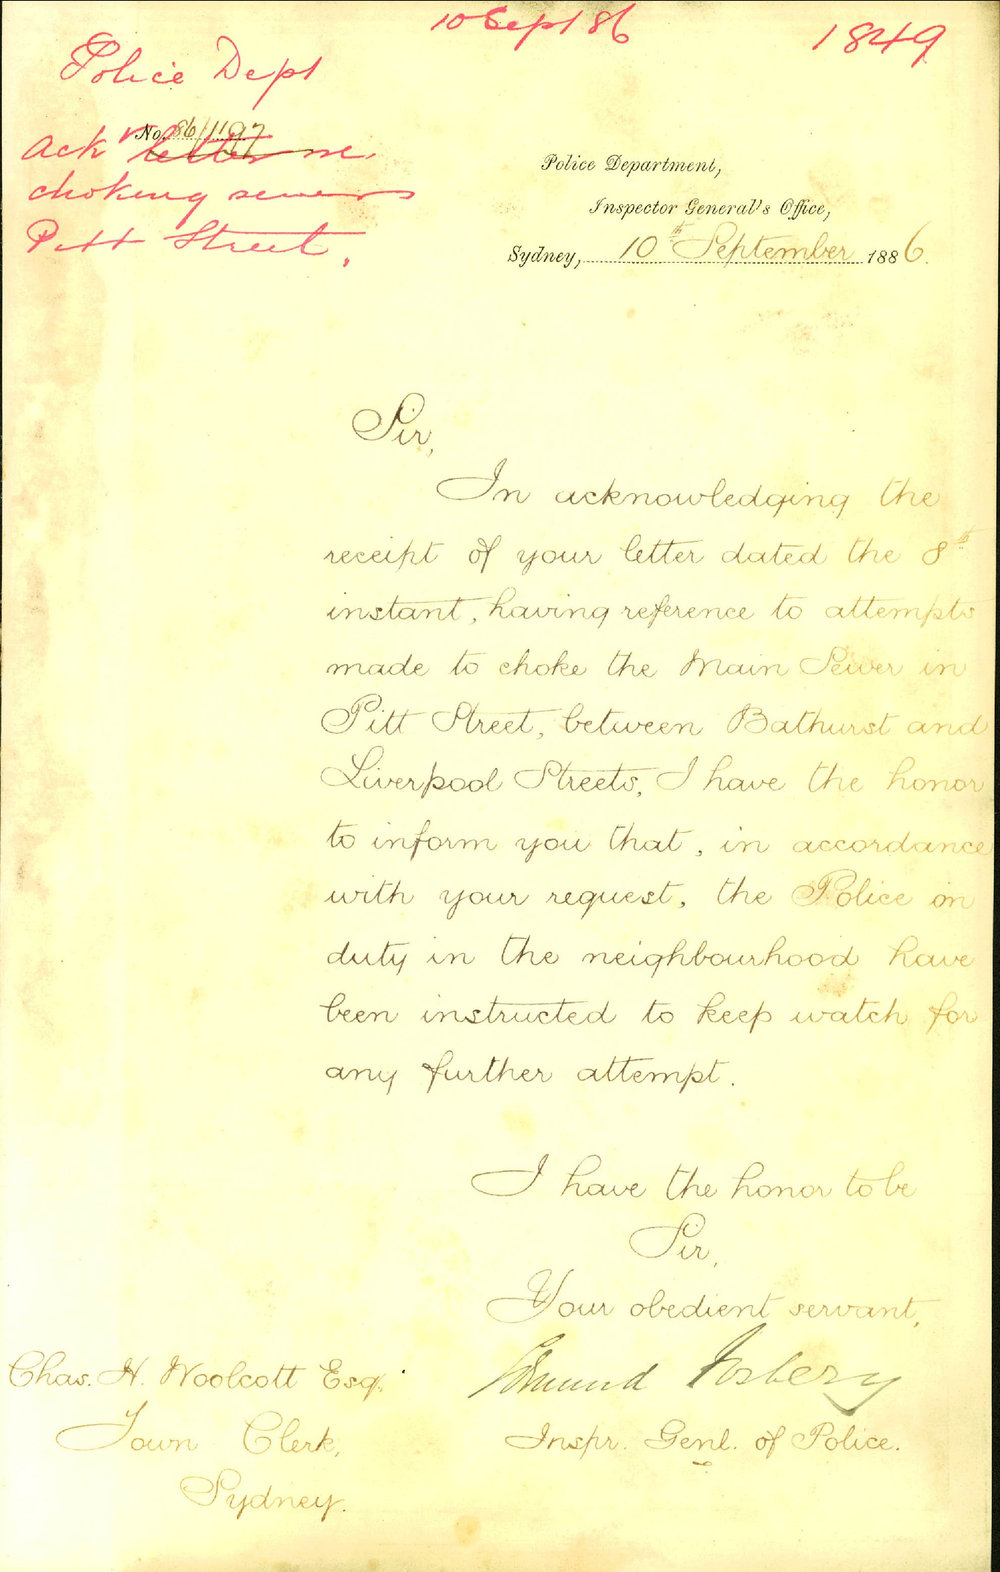 10 Sept 86
1849
Police Dept
No. 86/1197
Ack letter re
choking sewers
Pitt Street,
Police Department,
Inspector General's Office,
Sydney, 10th September 1886.
Sir,
In acknowledging the
receipt of your letter dated the 8th
instant, having reference to attempts
made to choke the Main Sewer in
Pitt Street, between Bathurst and
Liverpool Streets, I have the honor
to inform you that, in accordance
with your request, the Police on
duty in the neighbourhood have
been instructed to keep watch for
any further attempt.
I have the honor to be
Sir,
Your obedient servant,
Edmund Fosbery
Inspr. Genl. of Police.
Chas. H. Woolcott Esq.
Town Clerk,
Sydney.